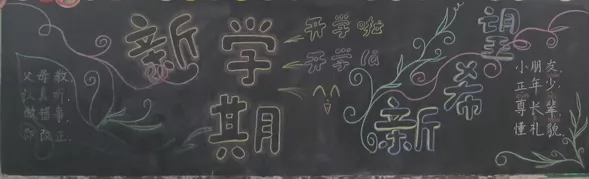 新学期
开学啦
开学
新希望
父母教,
认真听,
做错事,
改正.
小朋友,
正年少,
尊长辈,
懂礼貌.